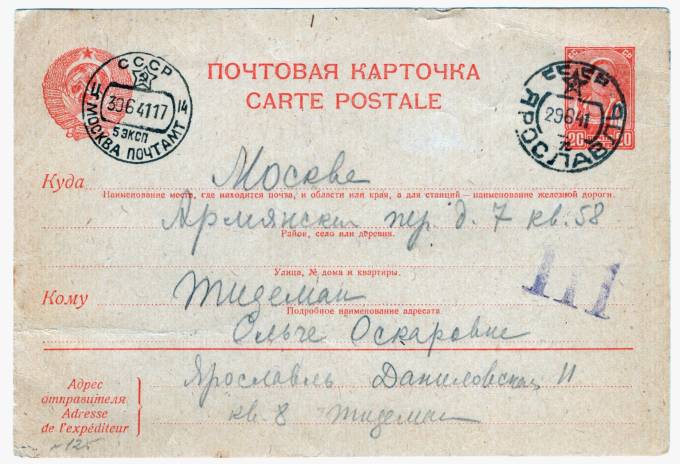 СССР
Ц 30641 17 14
5 ЭКСП
МОСКВА ПОЧТАМТ
ПОЧТОВАЯ КАРТОЧКА
CARTE POSTALE
СССР
29641
ЯРОСЛАВЛЬ
20 20
Куда Москва
Наименование места, где находится почта, и области или края, а для станций — наименование железной дороги.
Армянский пер. д. 7 кв. 58
Район, село или деревня.
Улица, № дома и квартиры.
111
Кому Тидеман
Подробное наименование адресата
Ольге Оскаровне
Адрес отправителя
Adresse de l'expéditeur
Ярославль Даниловская 11
кв. 8 Тидеман
125